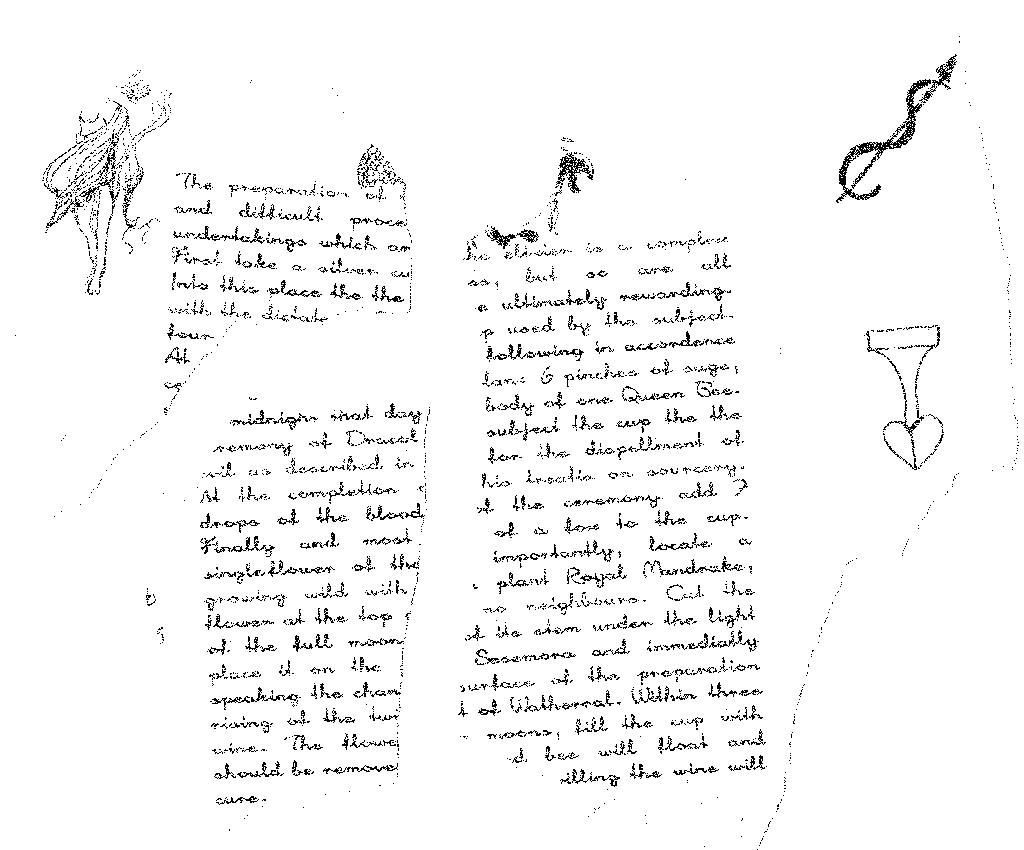 The preparation of
and difficult proce
undertakings which ar
First take a silver cu
Into this place the the
with the dictate
four
At
ce
midnight that day
remony of Dracol
vil as described in
At the completion
drops of the blood
Finally and most
single flower of the
growing wild with
flower at the top
of the full moon
place it on the
speaking the chan
rising of the twi
wine. The flowe
should be remove
cure.
he elixier is a complex
ss, but as are all
e ultimately rewarding.
p used by the subject.
following in accordance
lan: 6 pinches of sage,
body of one Queen Bee.
subject the cup the the
for the dispellment of
his treatis on sourcery.
of the ceremony add 7
of a fox to the cup.
importantly, locate a
plant Royal Mandrake,
no neighbours. Cut the
of its stem under the light
Sesemora and immediatly
surface of the preparation
t of Wathorral. Within three
moons, fill the cup with
d bee will float and
illing the wine will